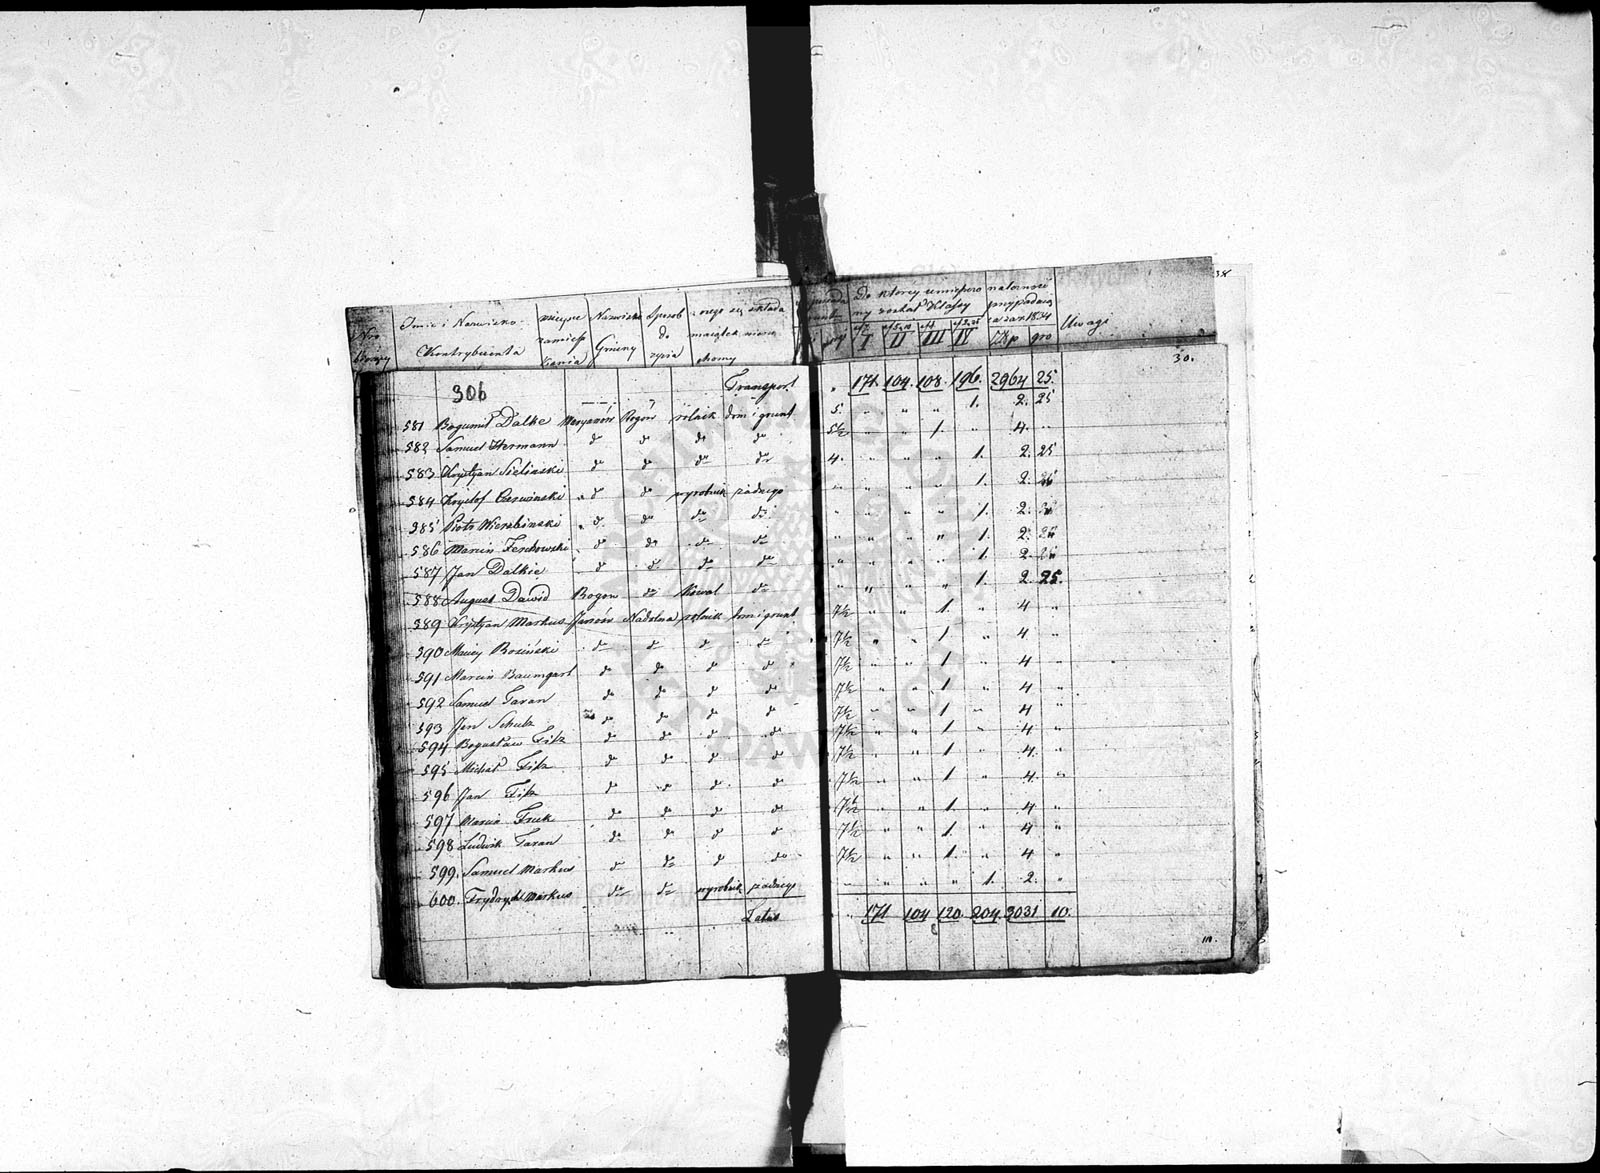 38
Imie i Nazwisko Kontrybuenta
miejsce zamieszkania
Nazwisko Gminy
Sposób do życia
z czego się składa majątek nieruchomy
posiada gruntu morgi
Do ktorey umieszczony został Klassy
I II III IV
należność przypadająca za rok 1834
Złp gro
Uwagi
30.
306 Transport " 171. 104. 108. 196. 2964 25.
581 Bogumił Dalke Maryanów Rogów rolnik dom i grunt 5. " " " 1. 2. 25
582 Samuel Hermann do do do do 5½ " " 1. " 4. "
583 Krystyan Sielinski do do do do 4. " " " 1. 2. 25
584 Krysztof Czerwinski do do wyrobnik żadnego " " " " 1. 2. 25
585 Piotr Wierzbinski do do do do " " " " 1. 2. 25
586 Marcin Zerchowski do do do do " " " " 1. 2. 25
587 Jan Dalkie do do do do " " " " 1. 2. 25
588 August Dawid Rogow do Kowal do " " " " 1. 2. 25.
589 Krystyan Markus Janów Nadolna rolnik dom i grunt 7½ " " 1. " 4 "
590 Maciej Rosiński do do do do 7½ " " 1. " 4 "
591 Marcin Baumgart do do do do 7½ " " 1. " 4 "
592 Samuel Taran do do do do 7½ " " 1. " 4 "
593 Jan Schulz do do do do 7½ " " 1. " 4 "
594 Bogusław Fitz do do do do 7½ " " 1. " 4 "
595 Michał Fitz do do do do 7½ " " 1. " 4. "
596 Jan Fitz do do do do 7½ " " 1. " 4. "
597 Marcin Fruk do do do do 7½ " " 1. " 4 "
598 Ludwik Taran do do do do 7½ " " 1. " 4 "
599. Samuel Markus do do do do 7½ " " 1. " 4 "
600. Frydrych Markus do do wyrobnik żadnego " " " " 1. 2. "
Latus " 171 104 120. 204. 3031 10.